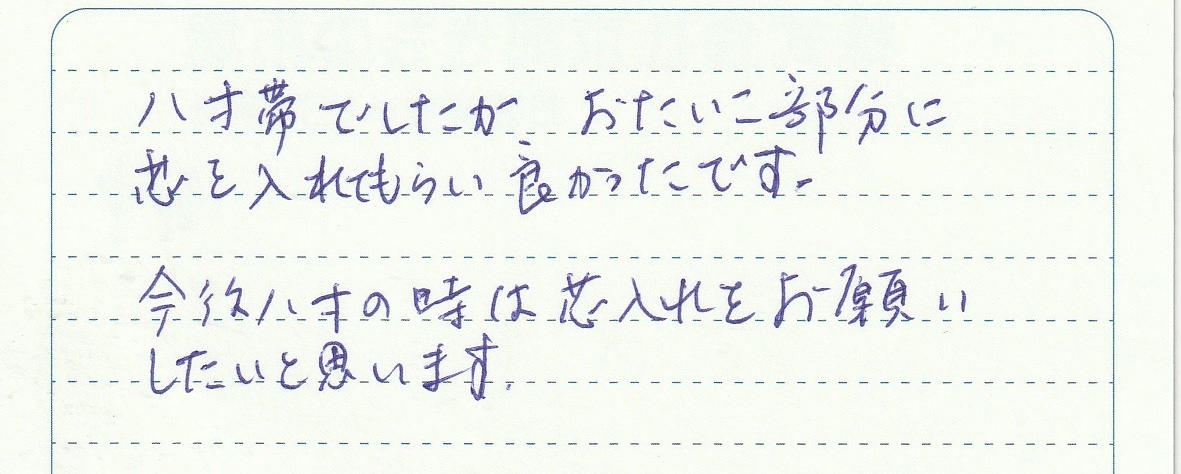 八才帯でしたが、おたいこ部分に
芯を入れてもらい良かったです。
今後八才の時は芯入れをお願い
したいと思います。